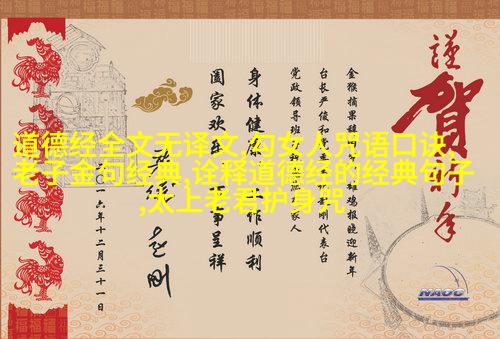 道德经全文无译文,勾女人咒语口诀,
老子金句经典,诠释道德经的经典句子
,太上老君护身咒
謹賀新年
金猴摘果 雄鸡报晓迎新年
台长严俊和党委 刚代表台
党政领导班 家人
身体健康 工作顺利
阖家欢乐 万事呈祥
赵刚
一六年十二月三十一日
NAOC